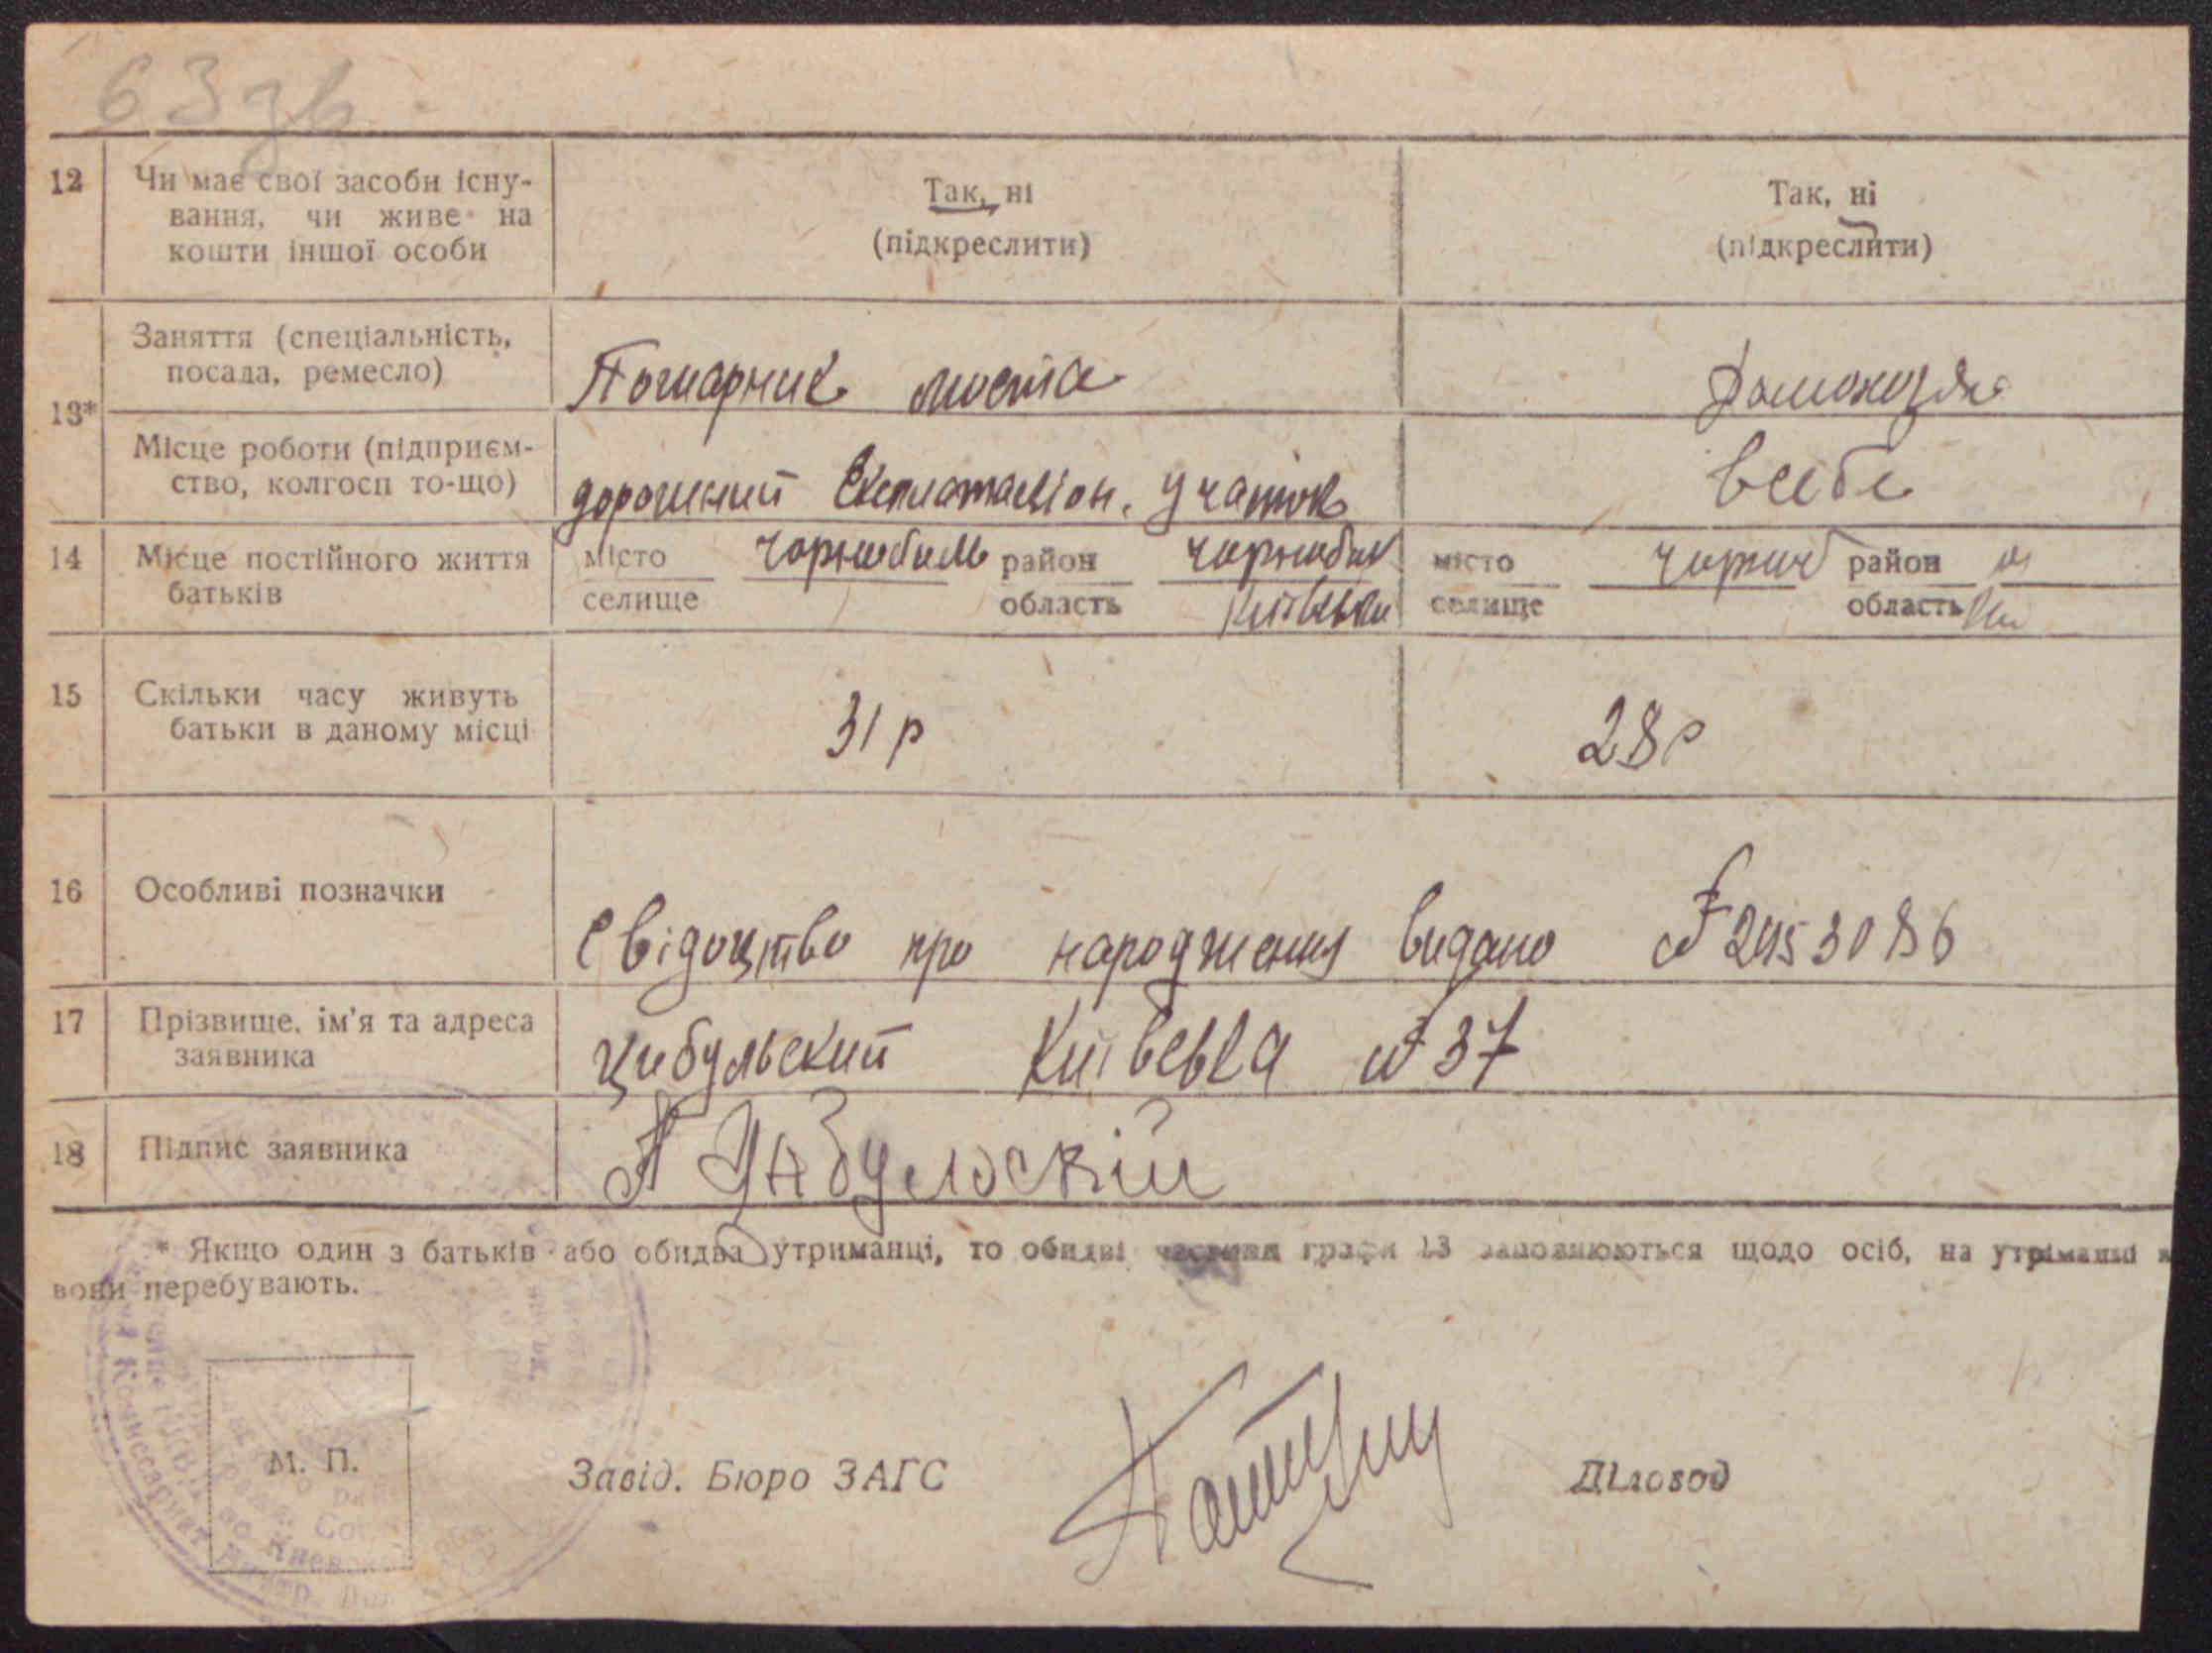 63зв
12 Чи має свої засоби існу-
вання, чи живе на
кошти іншої особи
Так, ні
(підкреслити)
Так, ні
(підкреслити)
13*
Заняття (спеціальність,
посада, ремесло)
Пожарник моста
Домохозяй
Місце роботи (підприєм-
ство, колгосп то-що)
дорожний Експлатаціон. участок
всебе
14 Місце постійного життя
батьків
місто Чорнобиль район Чорнобил
селище область Київськи
місто Чорноб район
селище область
15 Скільки часу живуть
батьки в даному місці
31 р
28 р
16 Особливі позначки
Свідоцтво про народження видано № 2453086
17 Прізвище, ім'я та адреса
заявника
Цибульский Київська № 37
18 Підпис заявника
Цибульскій
* Якщо один з батьків або обидва утриманці, то обидві частини графи 13 заповнюються щодо осіб, на утриманні
вони перебувають.
М. П.
Завід. Бюро ЗАГС
Діловод